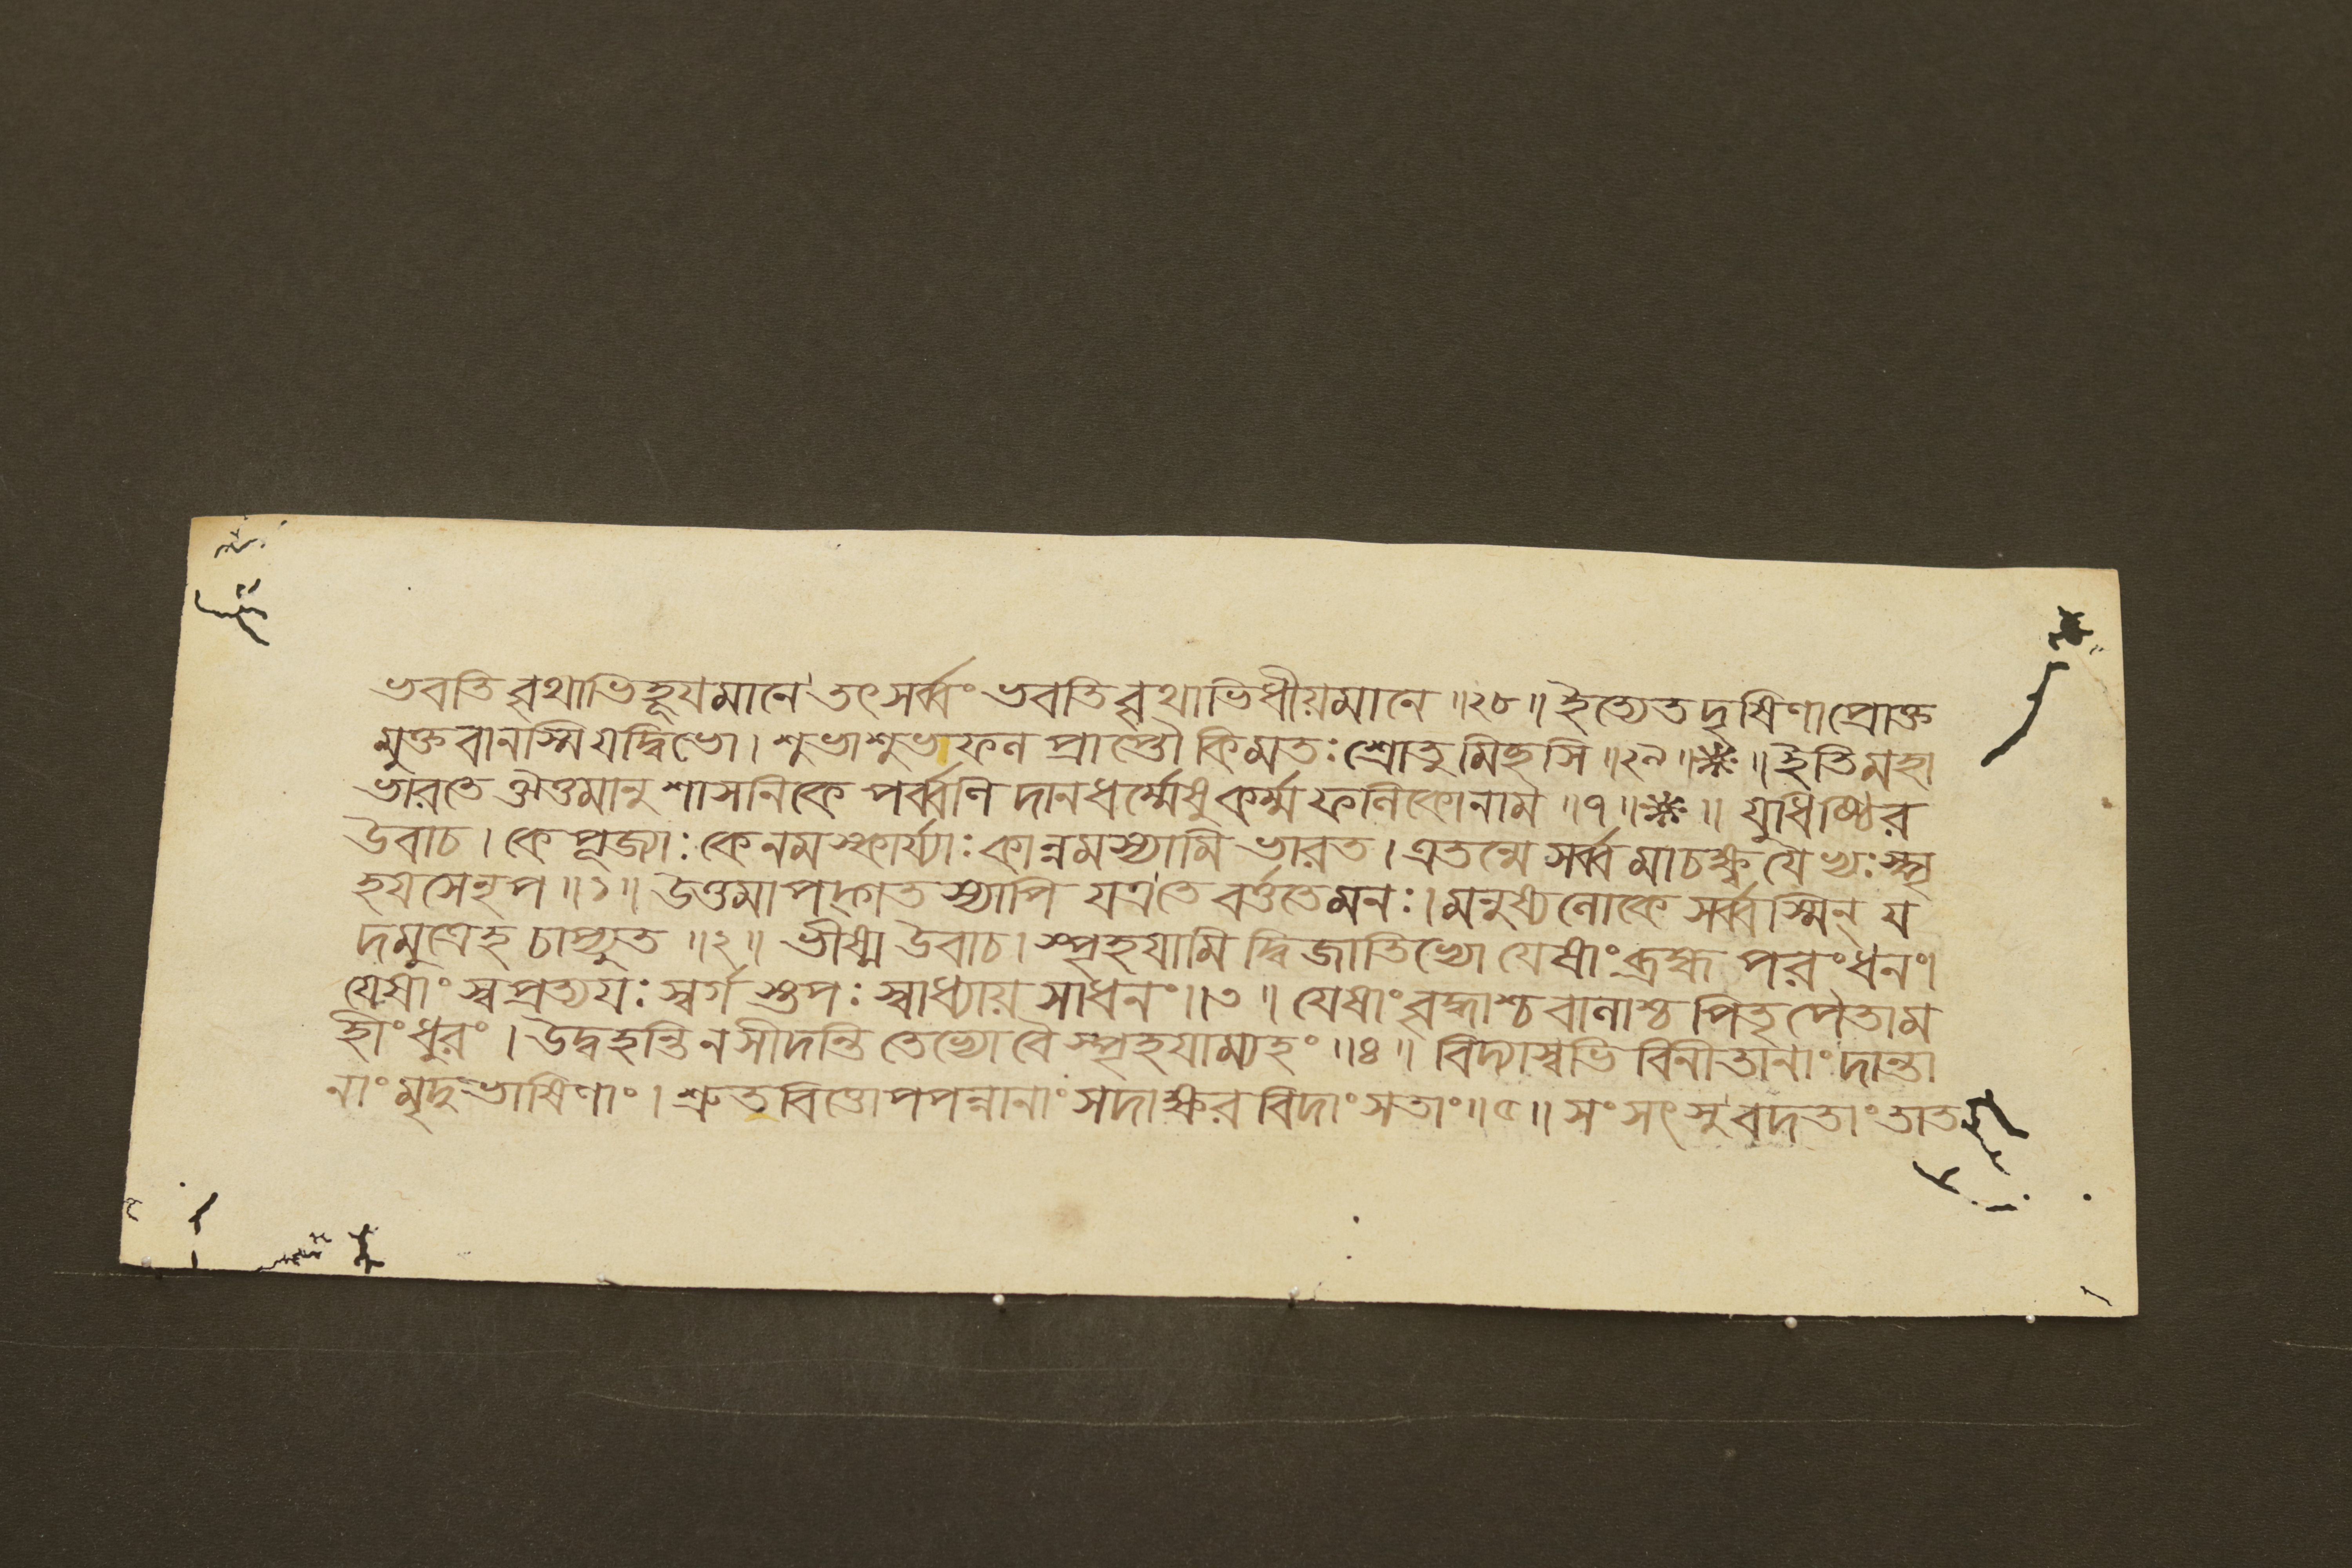 ভবতি বৃথাভিহূযমানে তৎসর্ব্বং ভবতি বৃথাভিধীয়মানে ॥২৮॥ ইত্যেতদৃষিণাপ্রোক্ত
মুক্তবানস্মি যদ্বিভো । শুভাশুভফল প্রাপ্তৌ কিমতঃ শ্রোতুমিহসি ॥২৯॥ * ॥ ইতি মহা
ভারতে ঔত্তমানুশাসনিকে পর্ব্বণি দানধর্ম্মেষু কর্ম্মফলিকোনাম ॥৭॥ * ॥ যুধিষ্ঠির
উবাচ । কে পূজ্যাঃ কে নমস্কার্য্যাঃ কান্নমস্যামি ভারত । এতন্মে সর্ব্বমাচক্ষ্ব যেভ্যঃ স্পৃ
হযসে নৃপ ॥১॥ উত্তমাপদ্গতস্যাপি যত্র তে বর্ত্ততে মনঃ । মনুষ্যলোকে সর্ব্বস্মিন্ য
দমুত্রেহ চাপ্যুত ॥২॥ ভীষ্ম উবাচ । স্পৃহযামি দ্বিজাতিভ্যো যেষাং ব্রহ্ম পরং ধনং ।
যেষাং স্বপ্রত্যযঃ স্বর্গ স্তপঃ স্বাধ্যায় সাধনং ॥৩॥ যেষাং বৃদ্ধাশ্চ বালাশ্চ পিতৃপৈতাম
হীং ধুরং । উদ্বহন্তি ন সীদন্তি তেভ্যো বৈ স্পৃহযাম্যহং ॥৪॥ বিদ্যাস্বভিবিনীতানাং দান্তা
নাং মৃদুভাষিণাং । শ্রুতবিত্তোপপন্নানাং সদাক্ষরবিদাং সতাং ॥৫॥ সংসৎসু বদতাং তাত